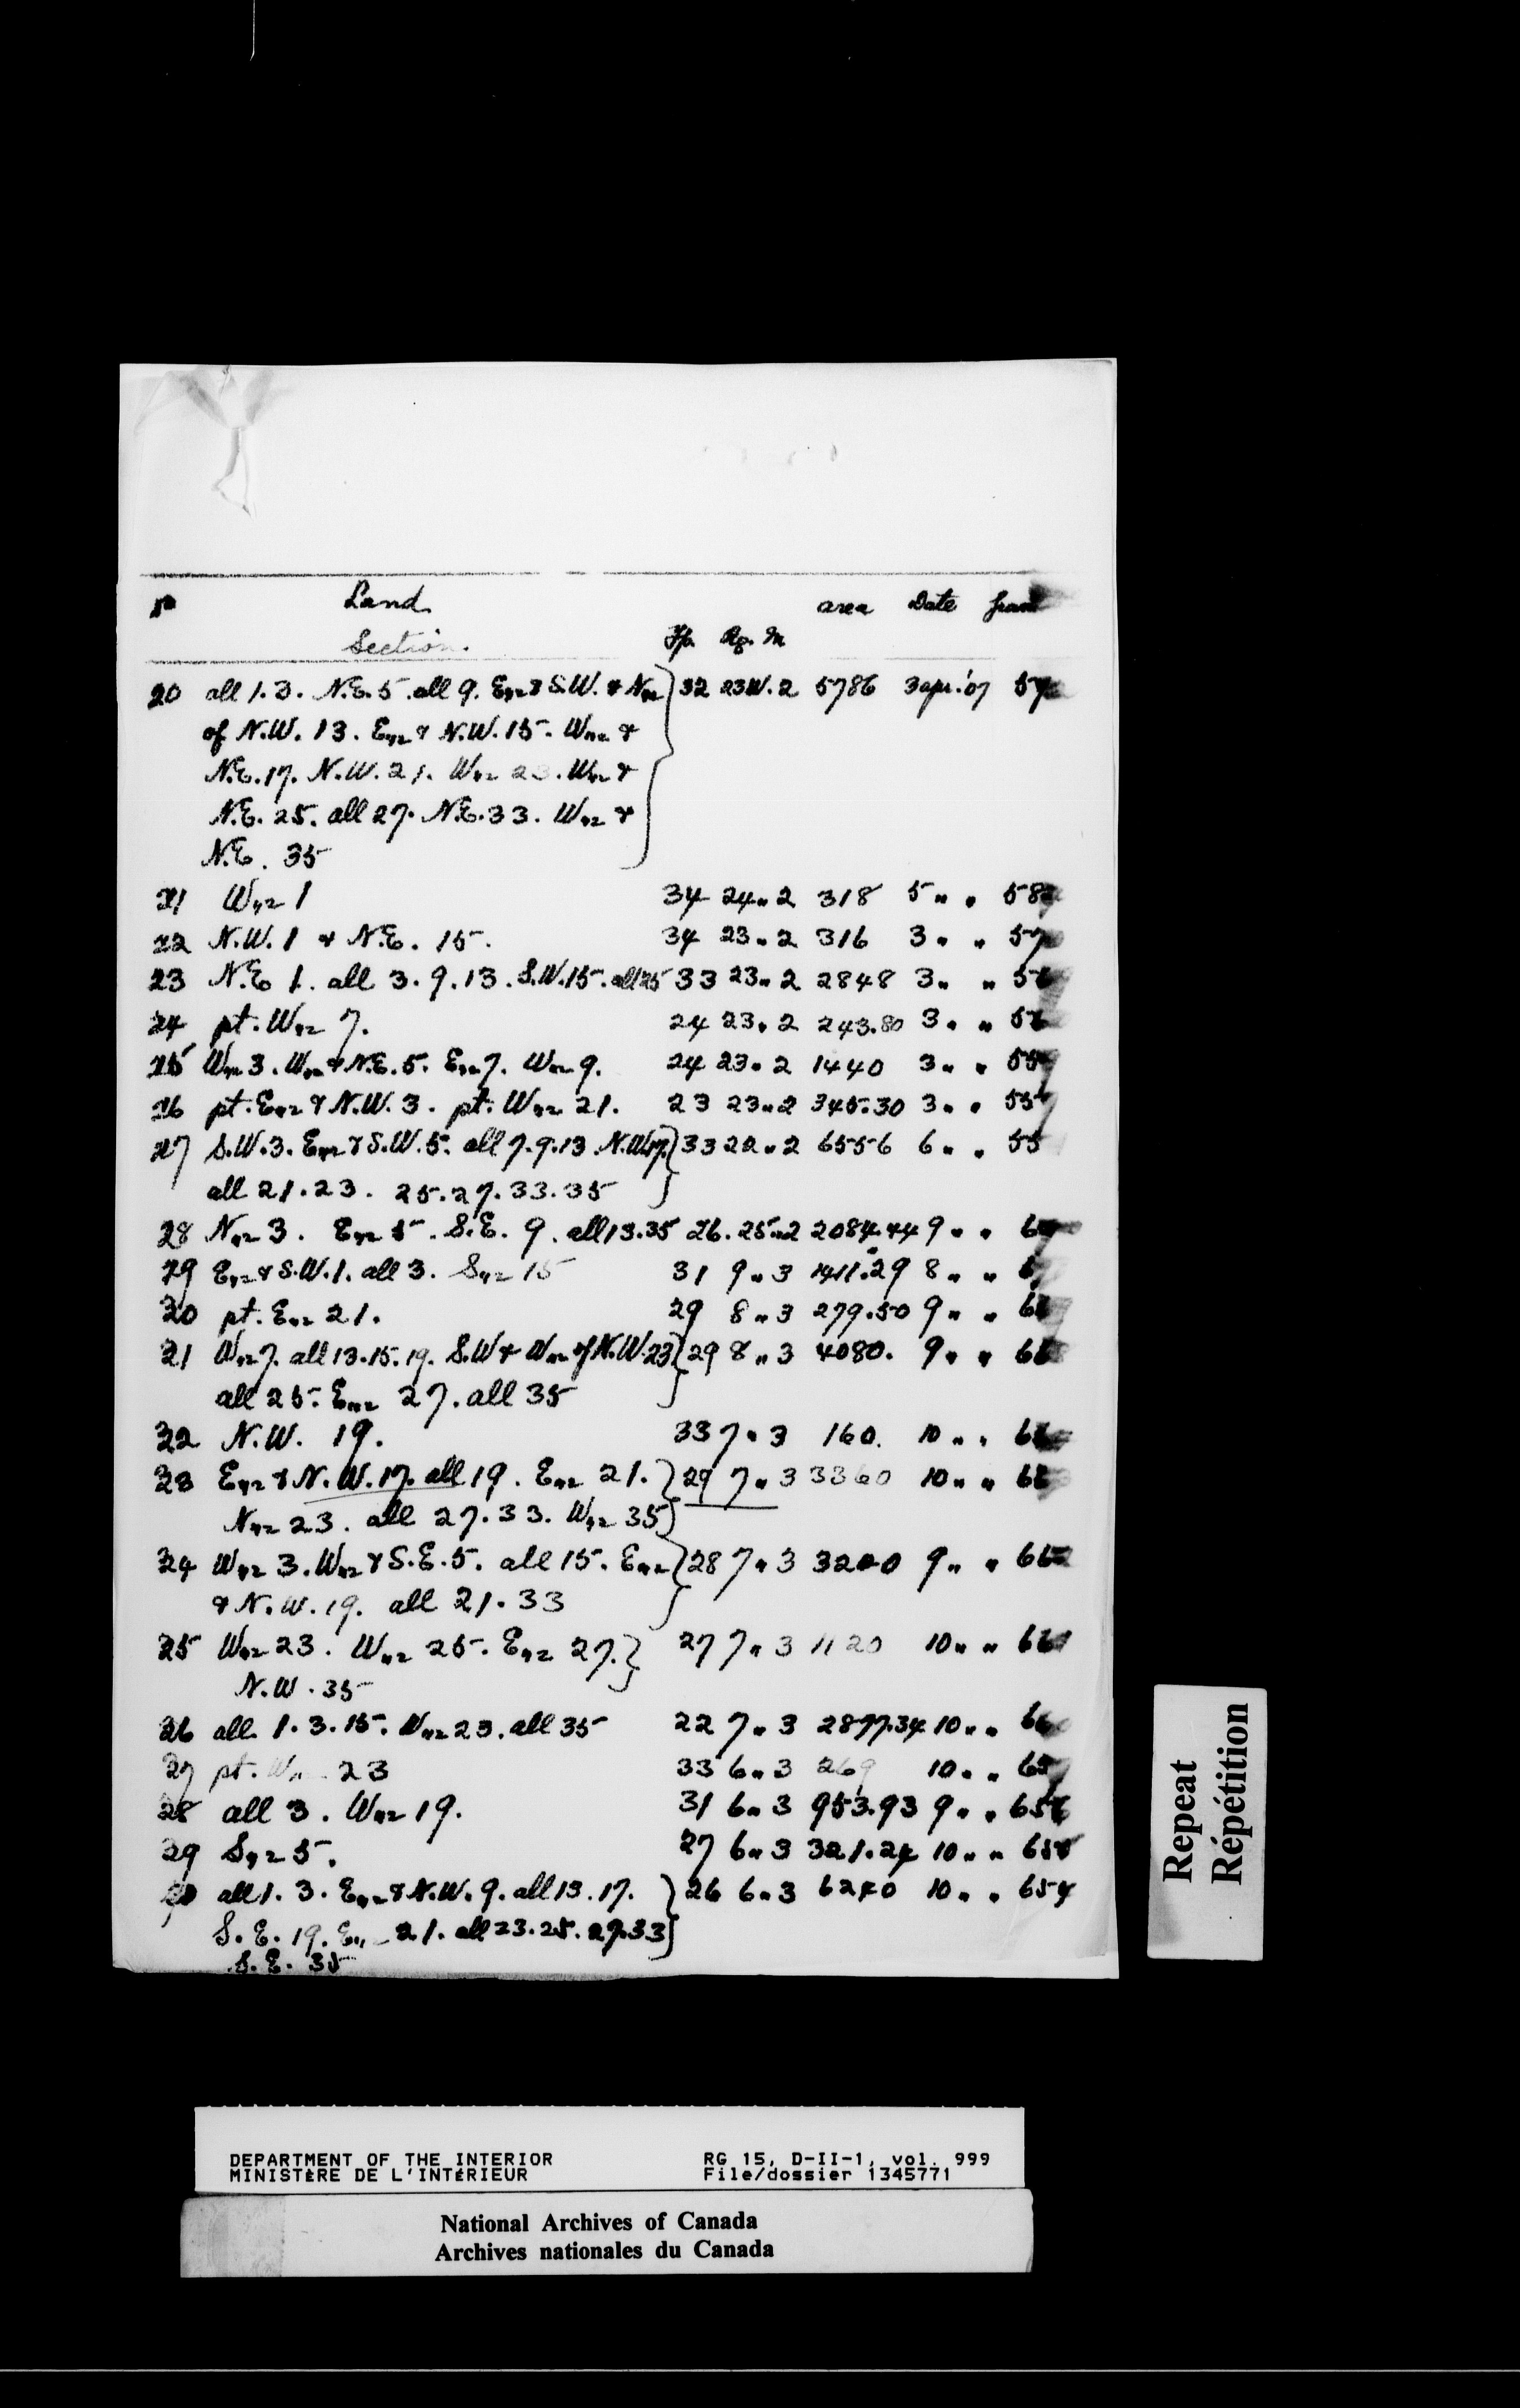 No Land area Date Grant
Section. Tp. Rg. M
20 all 1.3. N.E. 5. all 9. E1/2 & S.W. & N1/2 } 32 23W. 2 5786 3 apr. '07
of N.W. 13. E1/2 & N.W. 15. W1/2 &
N.E. 17. N.W. 21. W1/2 23. W1/2 &
N.E. 25. all 27. N.E. 33. W1/2 &
N.E. 35
21 W1/2 1 34 24 " 2 318 5 " "
22 N.W. 1 & N.E. 15. 34 23 " 2 316 3 " "
23 N.E 1. all 3. 9. 13. S.W. 15. all 25 33 23 " 2 2848 3 " "
24 pt. W1/2 7. 24 23 " 2 243.80 3 " "
25 W1/2 3. W1/2 & N.E. 5. E1/2 7. W1/2 9. 24 23 " 2 1440 3 " "
26 pt. E1/2 & N.W. 3. pt. W1/2 21. 23 23 " 2 345.30 3 " "
27 S.W. 3. E1/2 & S.W. 5. all 7. 9. 13. N.W. 17. } 33 22 " 2 6556 6 " "
all 21. 23. 25. 27. 33. 35
28 N1/2 3. E1/2 5. S.E. 9. all 13. 35 26. 25 " 2 2084.44 9 " "
29 E1/2 & S.W. 1. all 3. S1/2 15 31 9 " 3 1411.29 8 " "
30 pt. E1/2 21. 29 8 " 3 279.50 9 " "
31 W1/2 7. all 13. 15. 19. S.W & W1/2 of N.W. 23 } 29 8 " 3 4080. 9 " "
all 25. E1/2 27. all 35
32 N.W. 19. 33 7 " 3 160. 10 " "
33 E1/2 & N.W. 17. all 19. E1/2 21. } 29 7 " 3 3360 10 " "
N1/2 23. all 27. 33. W1/2 35
34 W1/2 3. W1/2 & S.E. 5. all 15. E1/2 } 28 7 " 3 3200 9 " " 662
& N.W. 19. all 21. 33
35 W1/2 23. W1/2 25. E1/2 27. } 27 7 " 3 1120 10 " " 661
N.W. 35
36 all 1. 3. 15. N1/2 23. all 35 22 7 " 3 2877.34 10 " " 660
37 pt. W1/2 23 33 6 " 3 269 10 " "
38 all 3. W1/2 19. 31 6 " 3 953.93 9 " " 656
39 S1/2 5. 27 6 " 3 321.24 10 " " 655
40 all 1. 3. E1/2 & N.W. 9. all 13. 17. } 26 6 " 3 6240 10 " " 654
S.E. 19. E1/2 21. all 23. 25. 27. 33
S.E. 35
Repeat
Répétition
DEPARTMENT OF THE INTERIOR RG 15, D-II-1, vol. 999
MINISTÈRE DE L'INTÉRIEUR File/dossier 1345771
National Archives of Canada
Archives nationales du Canada